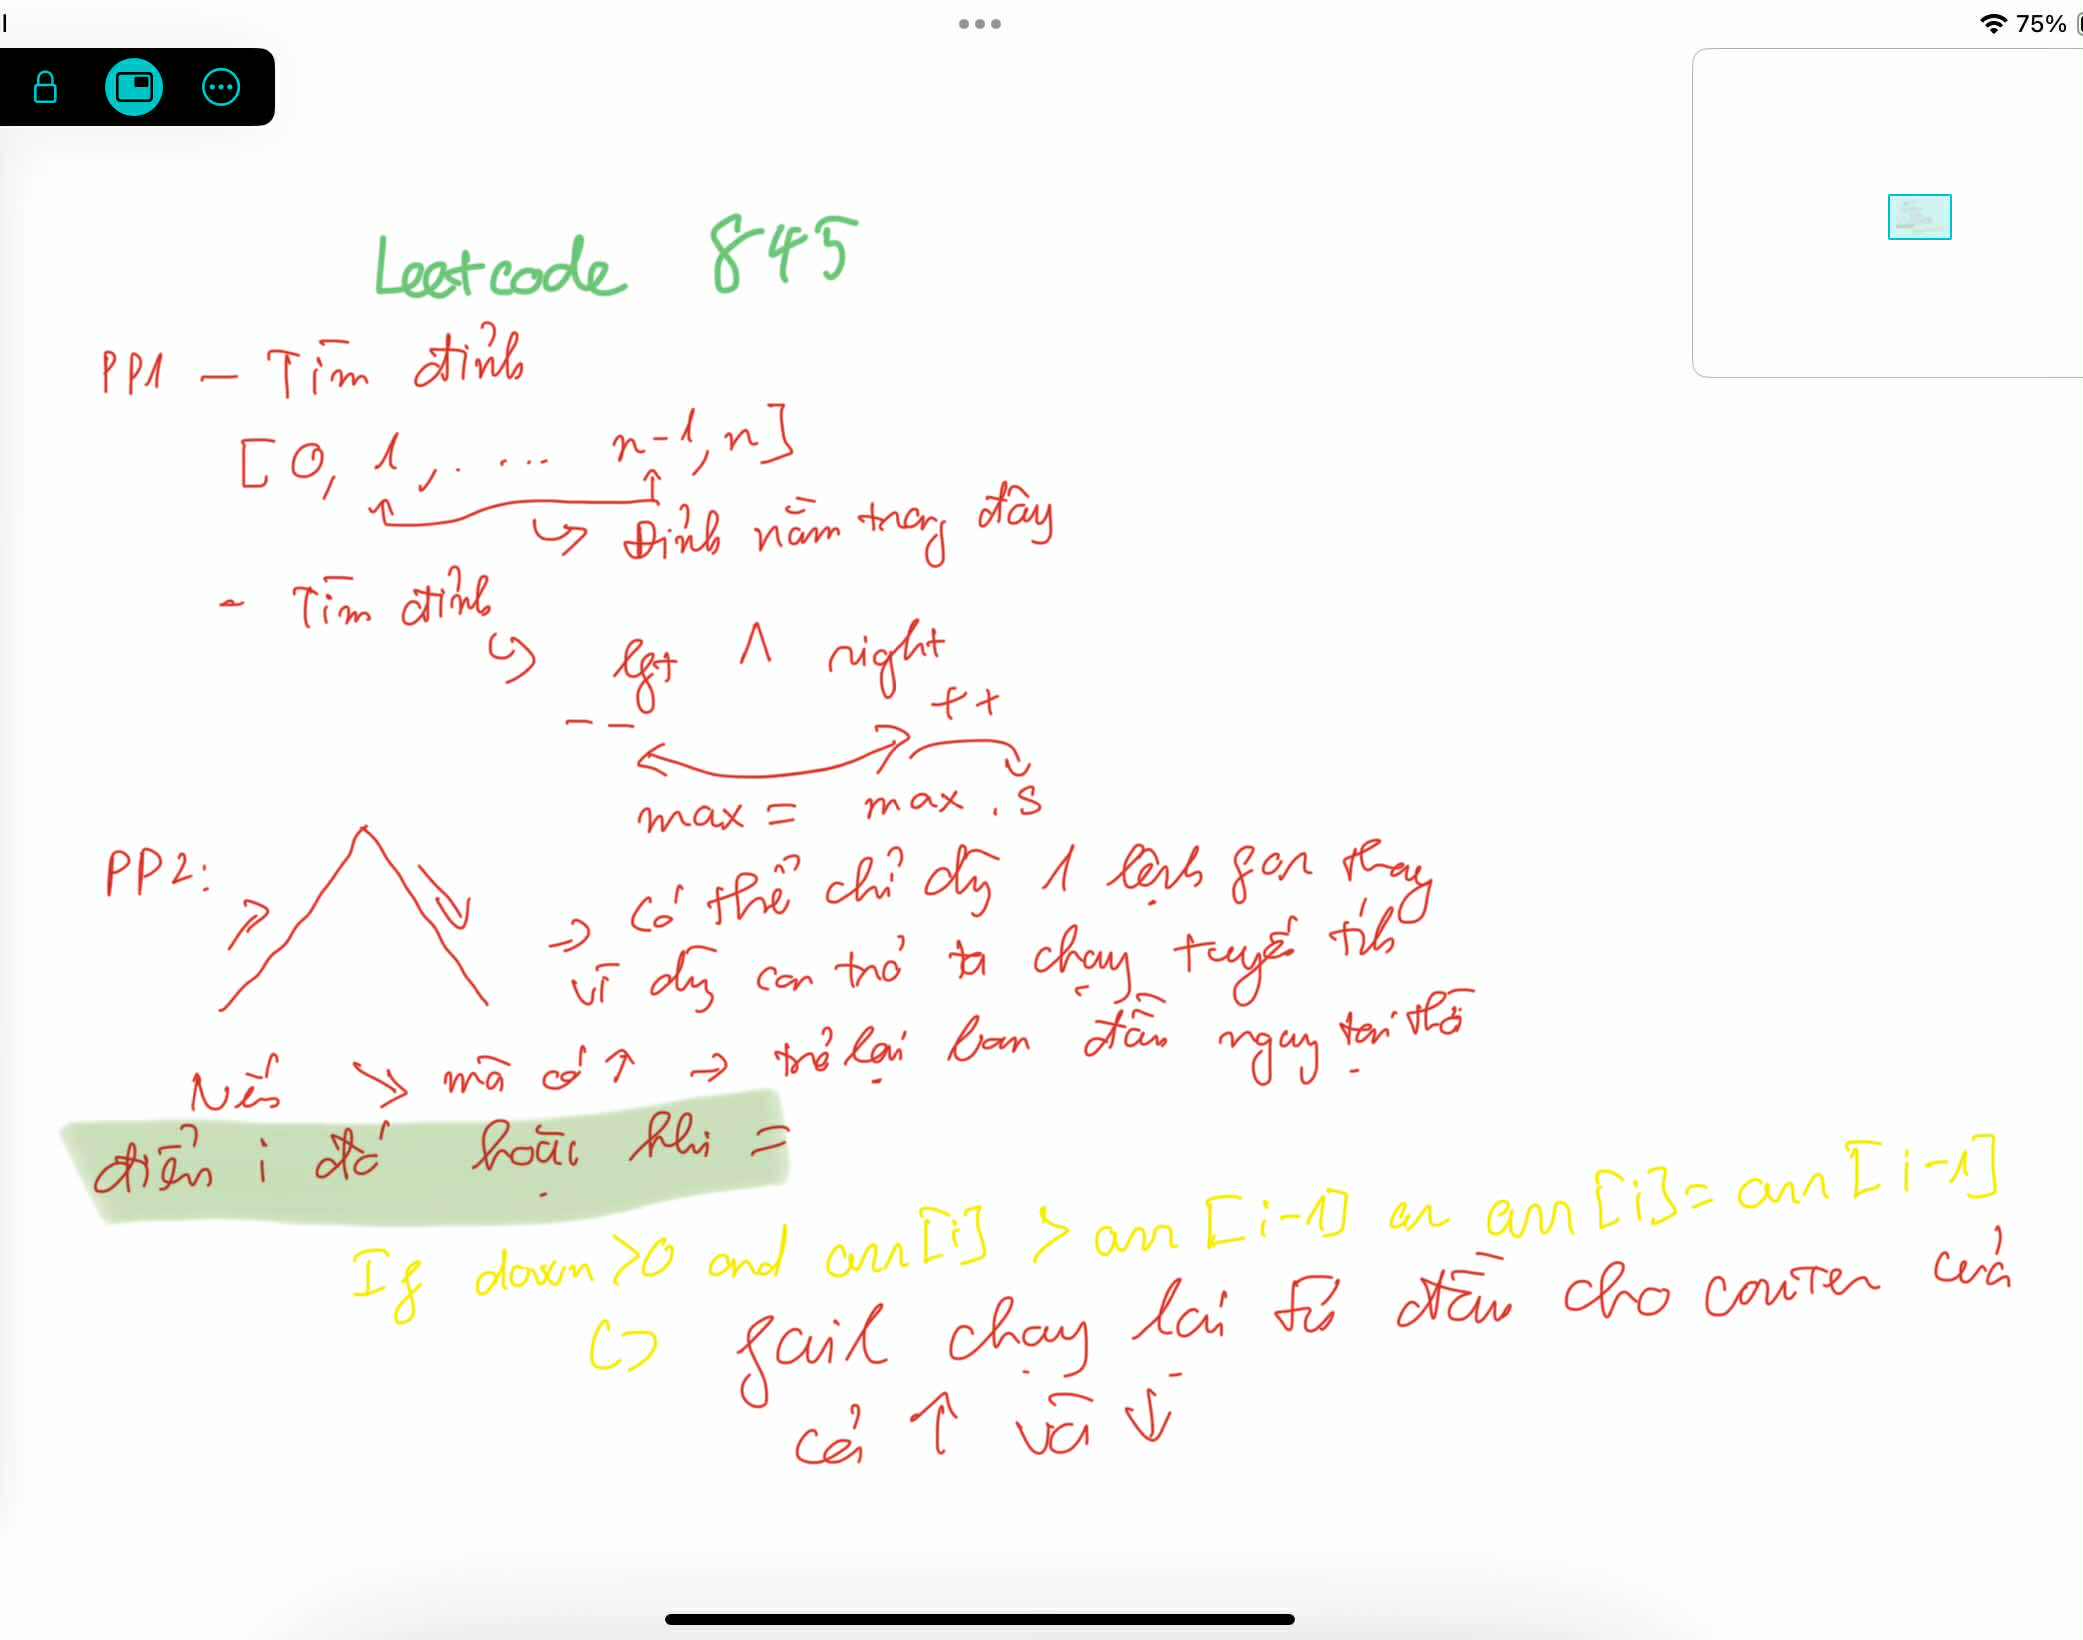 75%
Leetcode 845
PP1 – Tìm đỉnh
[0, 1, . ... n-1, n]
↳ Đỉnh nằm trong đây
- Tìm đỉnh
↳ left ∧ right
-- ++
max = max . s
PP2:
⇒ Có thể chỉ dùng 1 lệnh for thay
vì dùng con trỏ ta chạy tuyến tính
Nếu ↘ mà có ↑ → trở lại ban đầu ngay tại thời
điểm i đó hoặc khi =
If down >0 and arr[i] > arr[i-1] or arr[i] = arr[i-1]
↳ fail chạy lại từ đầu cho couter của
cả ↑ và ↓